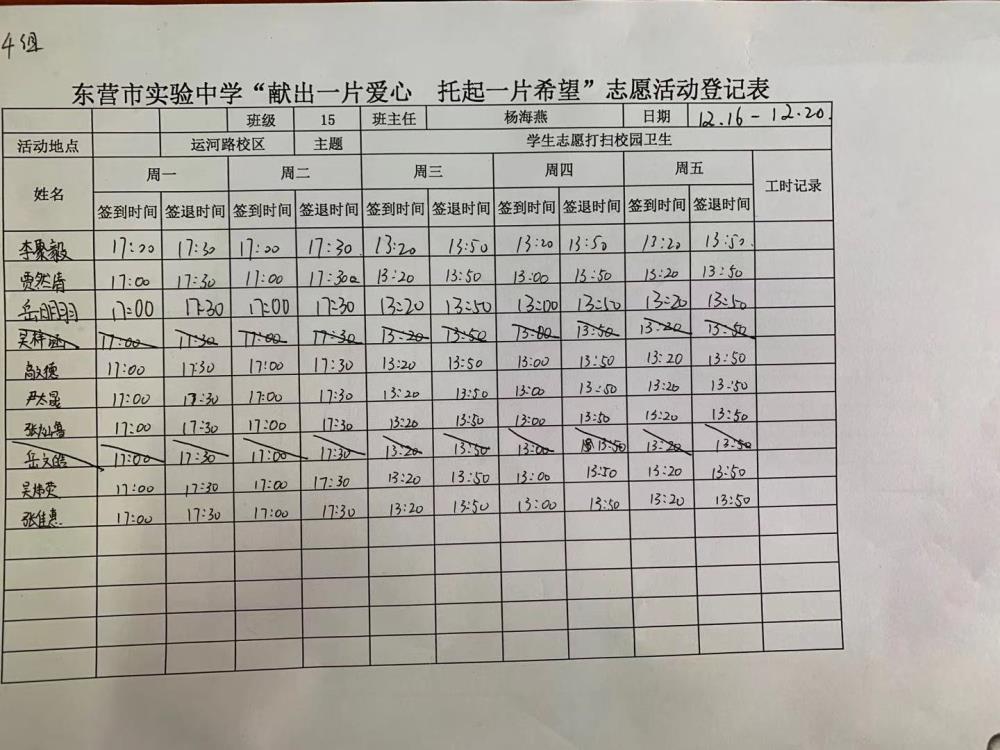 4组
东营市实验中学“献出一片爱心 托起一片希望”志愿活动登记表
班级 15 班主任 杨海燕 日期 12.16-12.20.
活动地点 运河路校区 主题 学生志愿打扫校园卫生
姓名 周一 周二 周三 周四 周五 工时记录
签到时间 签退时间 签到时间 签退时间 签到时间 签退时间 签到时间 签退时间 签到时间 签退时间
毅 17:00 17:30 17:00 17:30 13:20 13:50 13:20 13:50 13:20 13:50
贾然清 17:00 17:30 17:00 17:30 13:20 13:50 13:00 13:50 13:20 13:50
岳明羽 17:00 17:30 17:00 17:30 13:20 13:50 13:00 13:50 13:20 13:50
吴梓涵 17:00 17:30 17:00 17:30 13:20 13:50 13:00 13:50 13:20 13:50
高文德 17:00 17:30 17:00 17:30 13:20 13:50 13:00 13:50 13:20 13:50
尹大 17:00 17:30 17:00 17:30 13:20 13:50 13:00 13:50 13:20 13:50
张 17:00 17:30 17:00 17:30 13:20 13:50 13:00 13:50 13:20 13:50
岳文皓 17:00 17:30 17:00 17:30 13:20 13:50 13:00 13:50 13:20 13:50
吴 17:00 17:30 17:00 17:30 13:20 13:50 13:00 13:50 13:20 13:50
张佳惠 17:00 17:30 17:00 17:30 13:20 13:50 13:00 13:50 13:20 13:50